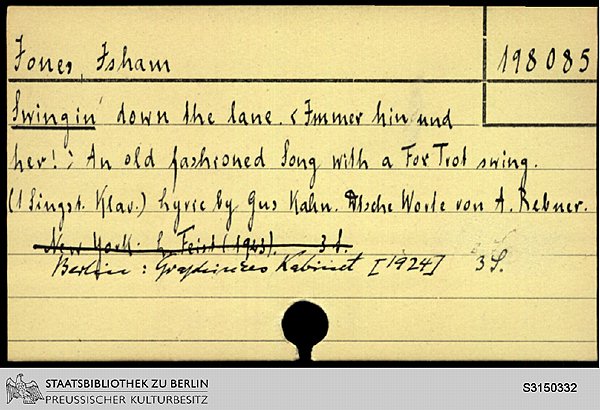 Jones, Isham
198085
Swingin' down the lane. <Immer hin und
her!> An old fashioned Song with a Fox Trot swing.
(1 Singst. Klav.) Lyric by Gus Kahn. Dtsche Worte von A. Rebner.
New York: L. Feist (1923). 3 S.
Berlin: Kabinet [1924] 3 S.
STAATSBIBLIOTHEK ZU BERLIN
PREUSSISCHER KULTURBESITZ
S3150332